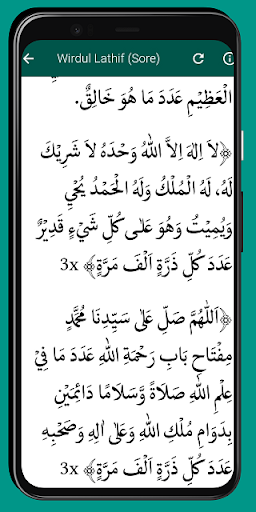 Wirdul Lathif (Sore)
الْعَظِيْمِ عَدَدَ مَا هُوَ خَالِقٌ.
﴿لاَ اِلٰهَ اِلاَّ اللهُ وَحْدَهُ لاَ شَرِيْكَ
لَهُ، لَهُ الْمُلْكُ وَلَهُ الْحَمْدُ يُحْيِ
وَيُمِيْتُ وَهُوَ عَلٰى كُلِّ شَيْءٍ قَدِيْرٌ
عَدَدَ كُلِّ ذَرَّةٍ اَلْفَ مَرَّةٍ﴾ 3x
﴿اَللّٰهُمَّ صَلِّ عَلٰى سَيِّدِنَا مُحَمَّدٍ
مِفْتَاحِ بَابِ رَحْمَةِ اللهِ عَدَدَ مَا فِيْ
عِلْمِ اللهِ صَلاَةً وَسَلاَمًا دَائِمَيْنِ
بِدَوَامِ مُلْكِ اللهِ وَعَلٰى اٰلِهِ وَصَحْبِهِ
عَدَدَ كُلِّ ذَرَّةٍ اَلْفَ مَرَّةٍ﴾ 3x